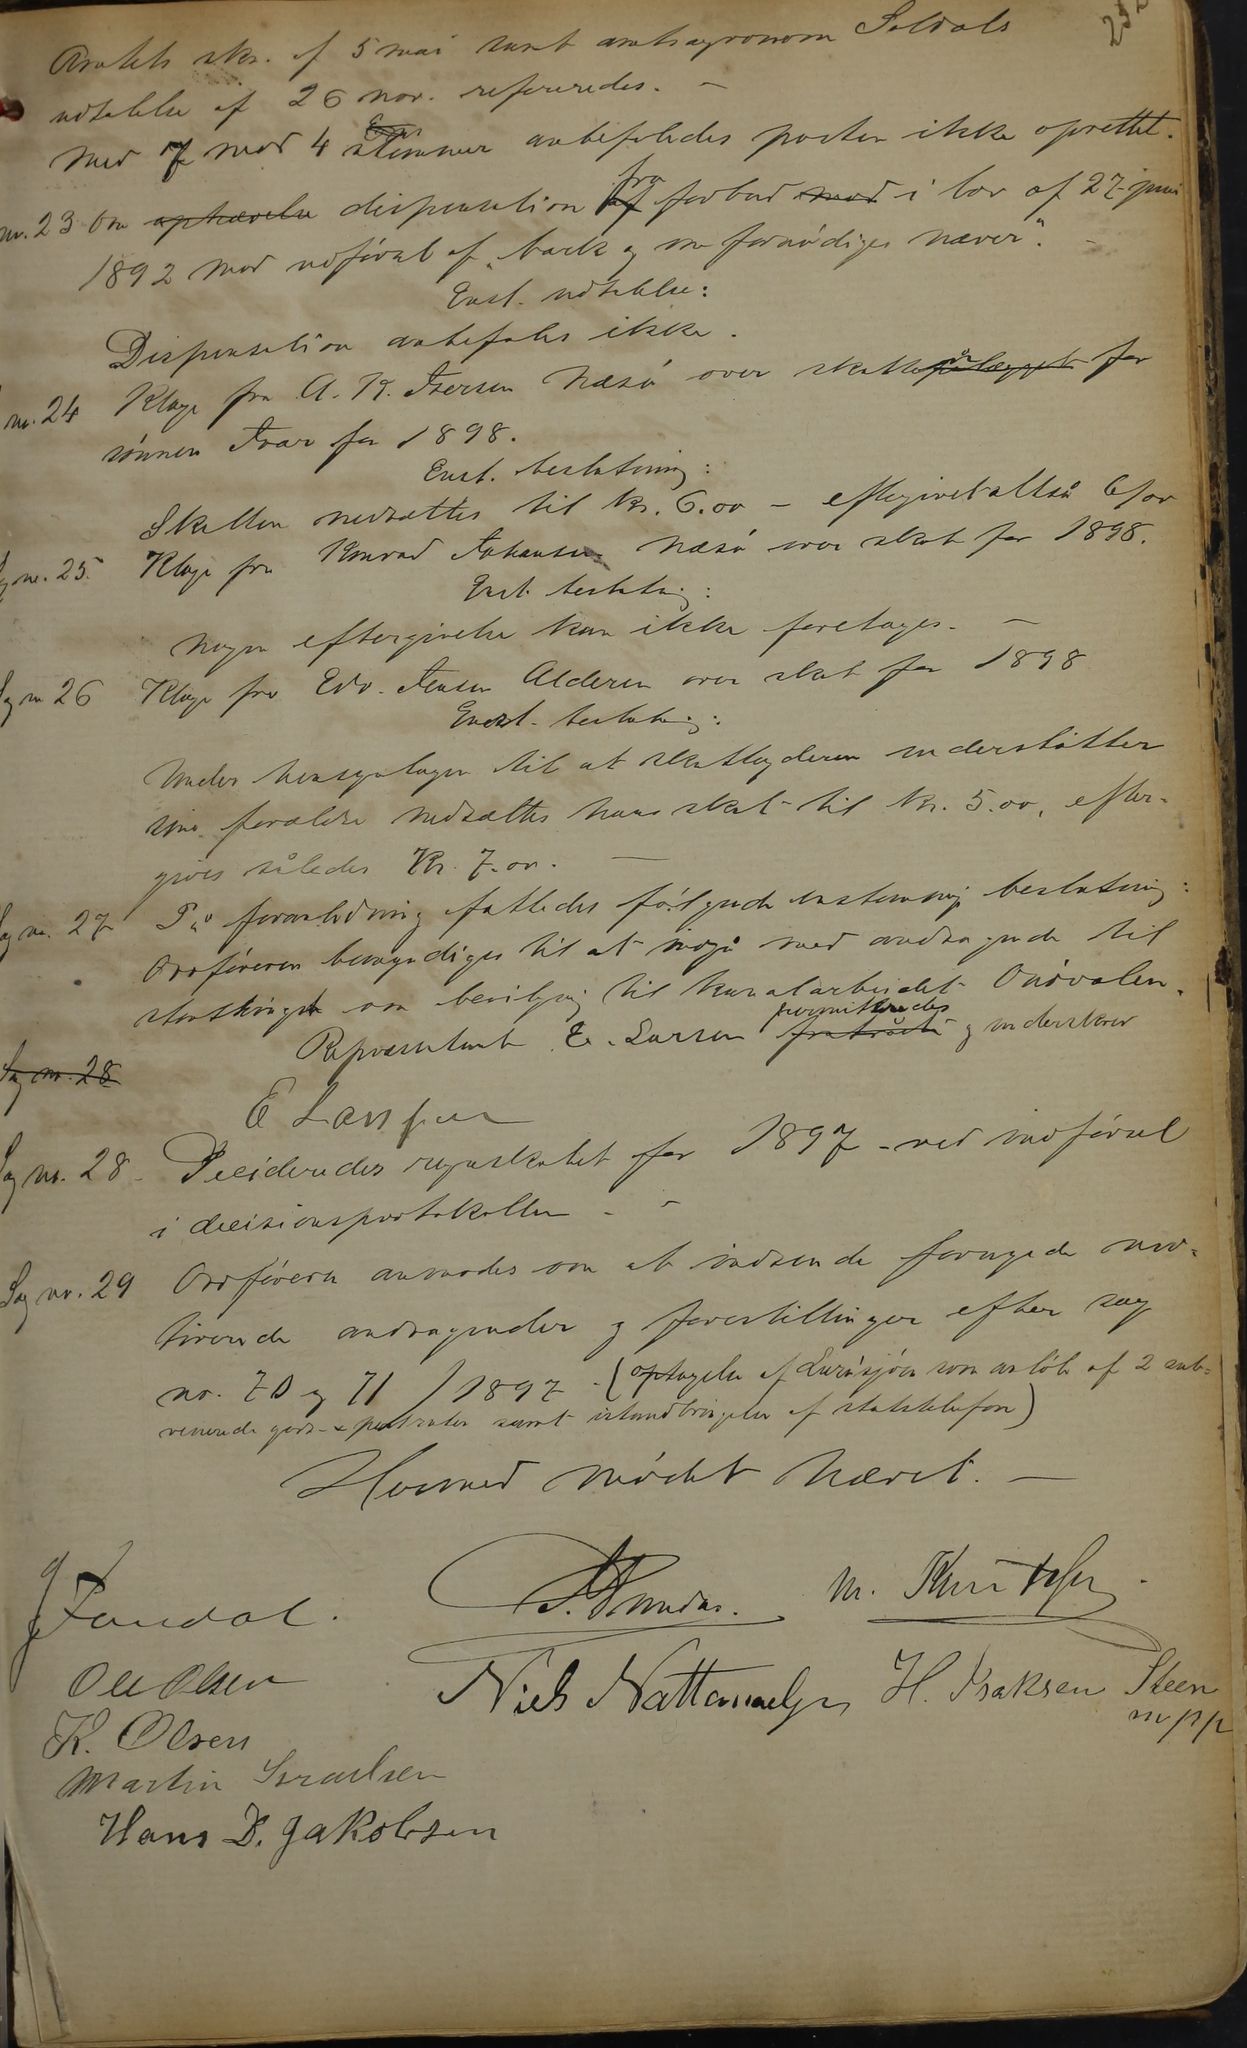 252
Amtets skr. af 5 mai samt amtsagronom Soldals
udtalelse af 26 nov. refereredes. -
Med 7 mod 4 stemmer anbefaledes posten ikke oprettet.
nr. 23 Om ophævelse dispensation af fra forbud mod i lov af 27 juni
1892 mod udførsel af "bark og unfornødiges næver". -
Enst. udtalelse:
Dispensation anbefales ikke.
nr. 24 Klage fra A. K. Iversen Næsø over skattepålægget for
sønnen Ivar for 1898.
Enst. beslutning:
Skatten nedsættes til Kr. 6.00 - eftergivet altså
Sag nr. 25. Klage fra Konrad Johansen Næsø over skat for 1898.
Enst. beslutning:
Nogen eftergivelse kan ikke foretages. -
Sag nr 26 Klage fra Edv. Jensen Alderen over skat for 1898
Enst. beslutning:
Under hensyntagen til at skatteyderen understøtter
sine forældre nedsættes hans skat til Kr. 5.00, efter-
gives således Kr. 7.00. -
Sag nr. 27 På foranledning fattedes følgende enstemmig beslutning:
Ordføreren bemyndiges til at indgå med andragende til
stortinget om bevilgning til kanalarbeidet
Repræsentant E. Larsen fratrådte permitteredes og underskrev
Sag nr. 28
E Larssen
Sag nr. 28 - Decideredes regnskabet for 1897 - ved indførsel
i decisionsprotokollen. -
Sag nr. 29 Ordføreren anmodes om at indsende fornyede mo-
tiverede andragender og forestillinger efter sag
nr. 70 og 71 / 1897 - (optagelse af Lurøsjøen som anløb af 2 sub-
venerede gods- & postruter samt istandbringelse af statstelefon)
Hermed mødet hævet. -
J Fondal.
M. Knutsen
Ole Olsen
Niels Nattanaelsen H. Isaksen Steen
m p p
K. Olsen
Martin Israelsen
Hans D. Jakobsen